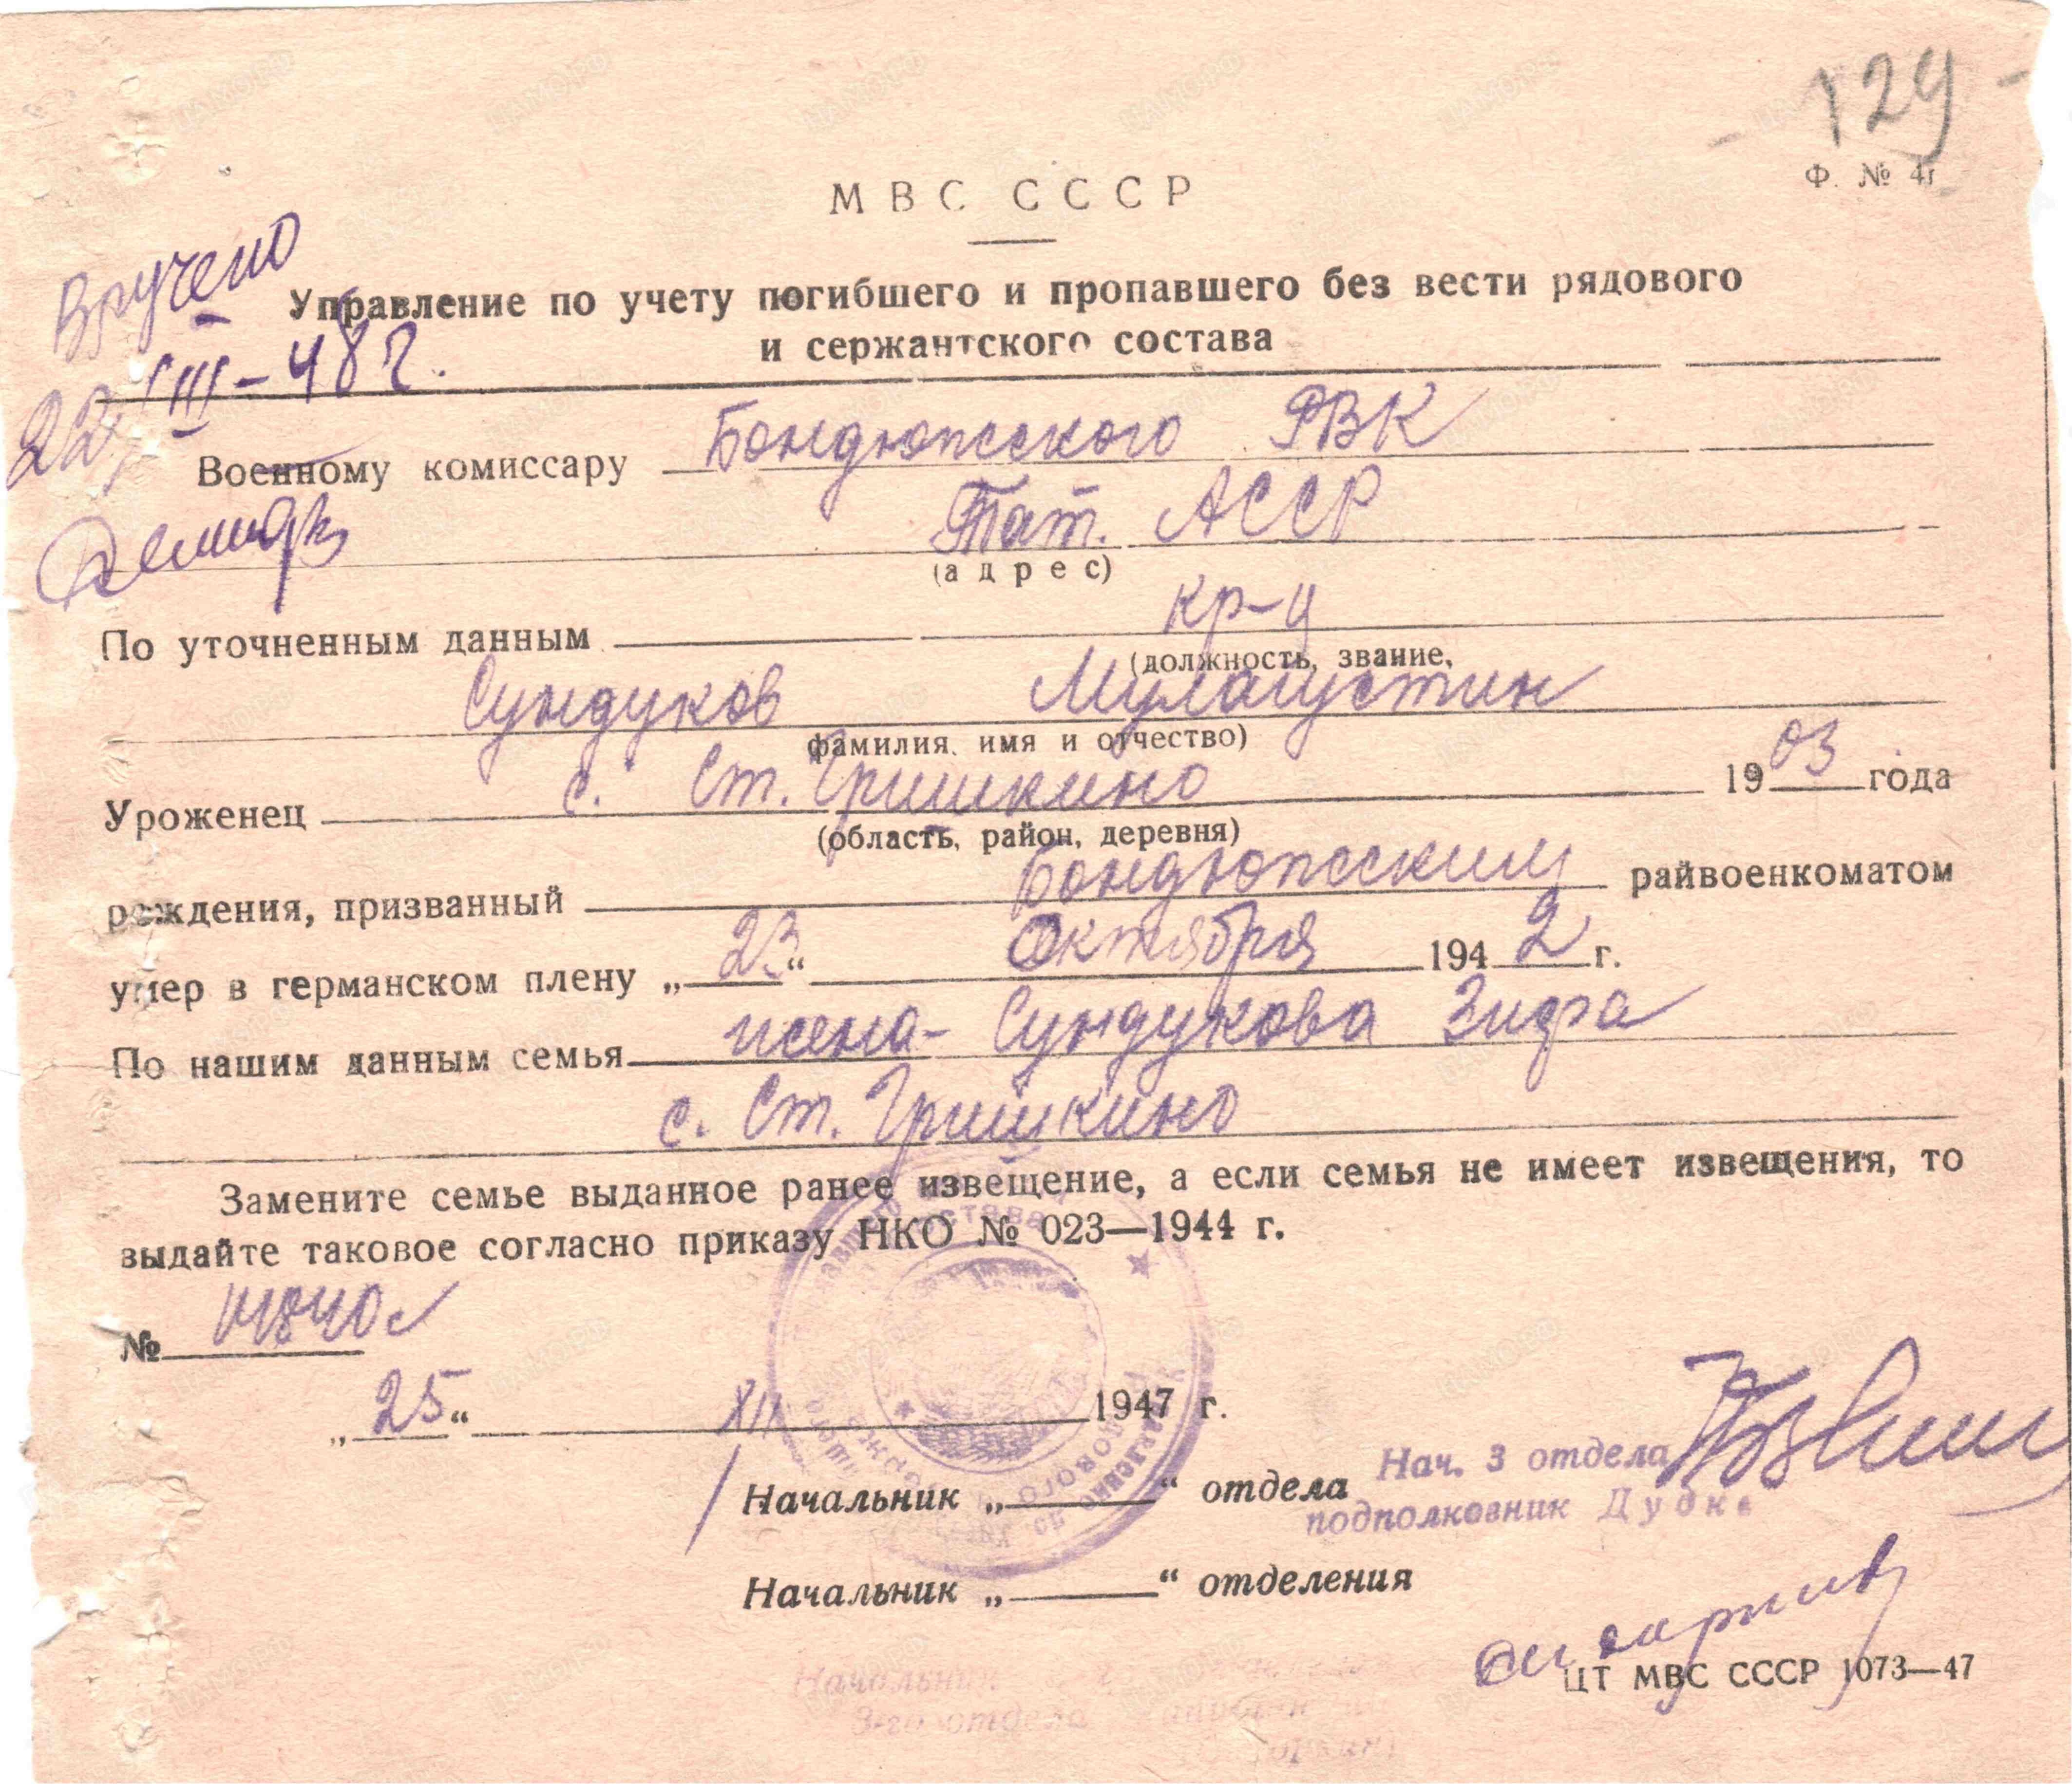 129
Ф. № 4г
МВС СССР
Вручено
22/III-48 г.
Управление по учету погибшего и пропавшего без вести рядового
и сержантского состава
Военному комиссару Бондюжского РВК
Тат. АССР
(адрес)
По уточненным данным кр-ц
(должность, звание,
Сундуков Мулагустин
фамилия, имя и отчество)
Уроженец с. Ст. Гришкино 1903 года
(область, район, деревня)
рождения, призванный Бондюжским райвоенкоматом
умер в германском плену „23“ Октября 1942 г.
По нашим данным семья жена- Сундукова Зифа
с. Ст. Гришкино
Замените семье выданное ранее извещение, а если семья не имеет извещения, то
выдайте таковое согласно приказу НКО № 023—1944 г.
№
„25“ XII 1947 г.
Начальник „ “ отдела Нач. 3 отдела
подполковник Дудка
Начальник „ “ отделения
ЦТ МВС СССР 1073—47
Начальник
3-го отдела